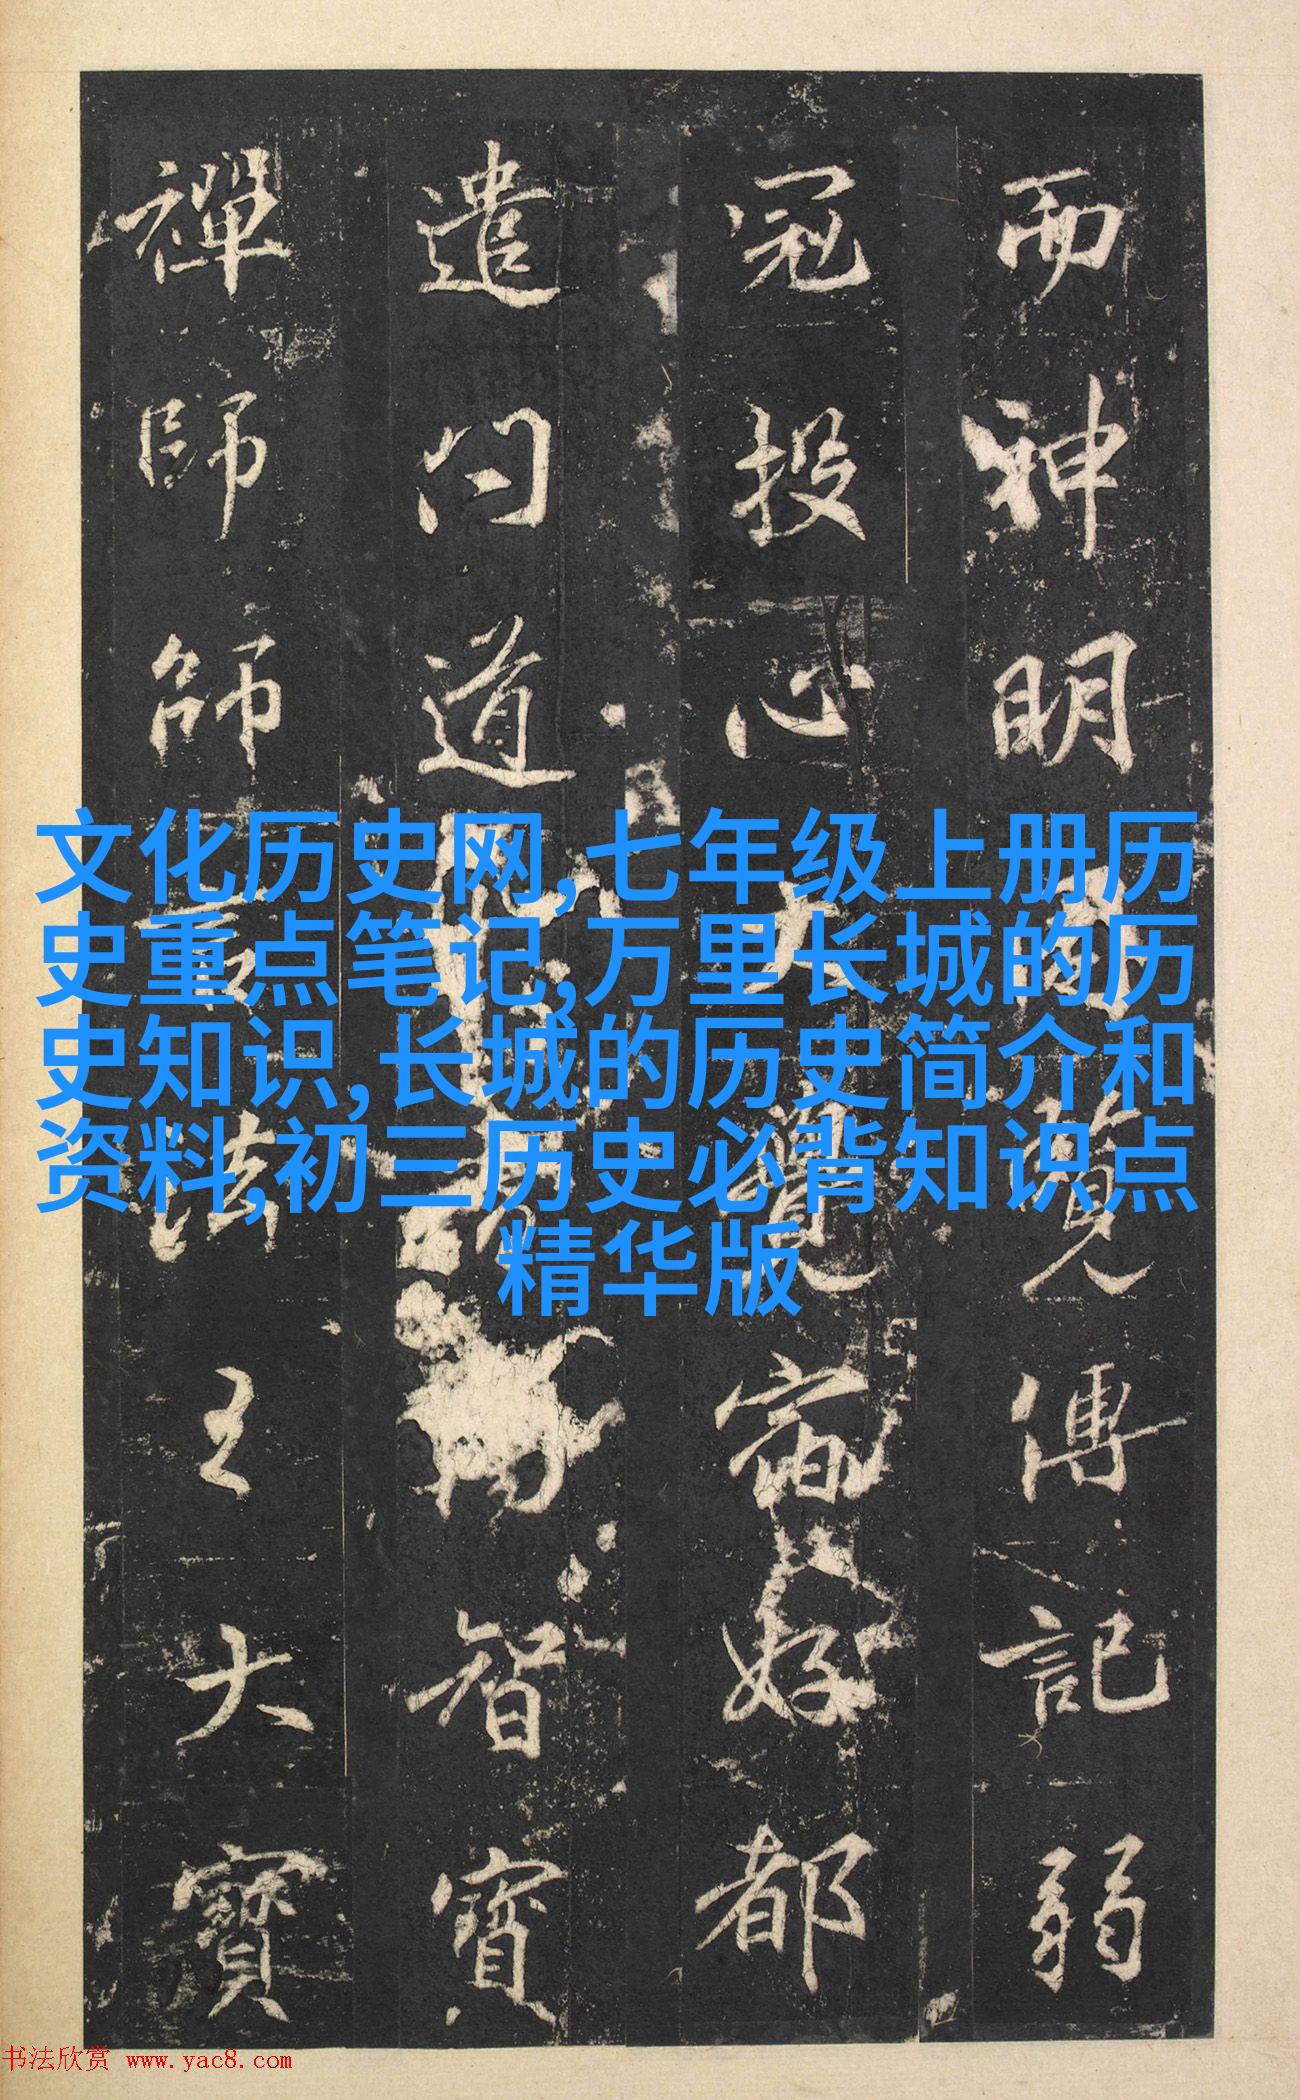 而神明覽傳記弱
冠投心宿好都
遣問道智寶
禪師師法王大寶
文化历史网,七年级上册历
史重点笔记,万里长城的历
史知识,长城的历史简介和
资料,初三历史必背知识点
精华版
书法欣赏 www.yac8.com